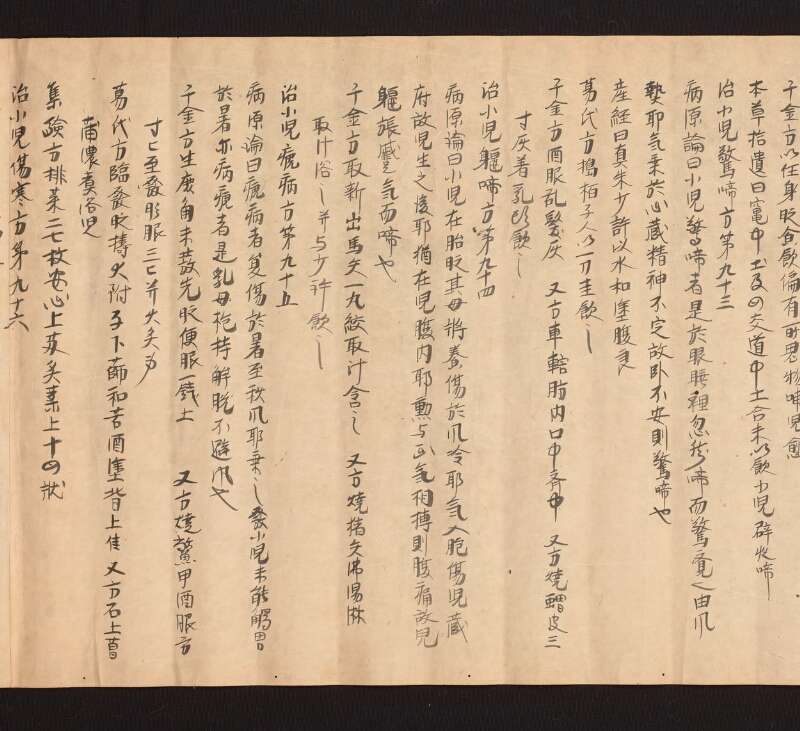 千金方以任身時食飲偏有所思物哺児愈
本草拾遺曰竃中土及四交道中土合末以飲小児辟夜啼
治小児驚啼方第九十三
病源論曰小児驚啼者是於眠睡裡忽然啼而驚覚之由風
熱耶気乗於心蔵精神不定故卧不安則驚啼也
産経曰真朱少許以水和塗腹良
葛氏方搗柏子人以一刀圭飲之
千金方酒服乱髪灰 又方車轄脂内口中斉中 又方焼蝟皮三
寸灰着乳頭飲之
治小児躯啼方第九十四
病源論曰小児在胎時其母将養傷於風冷耶気入胞傷児蔵
府故児生之後耶猶在児腹内耶動与正気相搏則腹痛故児
躯張蹙気而啼也
千金方取新出馬矢一丸絞取汁含之 又方焼猪矢沸湯淋
取汁浴之并与少許飲之
治小児瘧病方第九十五
病源論曰瘧病者夏傷於暑至秋風耶乗之発小児未能觸冒
於暑亦病瘧者是乳母抱持解脱不避風也
千金方生鹿角末發先時便服一錢 又方焼鱉甲酒服方
寸匕至發時服三匕并火炙
葛氏方臨發時搗大附子下篩和苦酒塗背上佳 又方石上菖
蒲濃煮浴児
集験方桃葉二七枚安心上灸葉上十四壮
治小児傷寒方第九十六